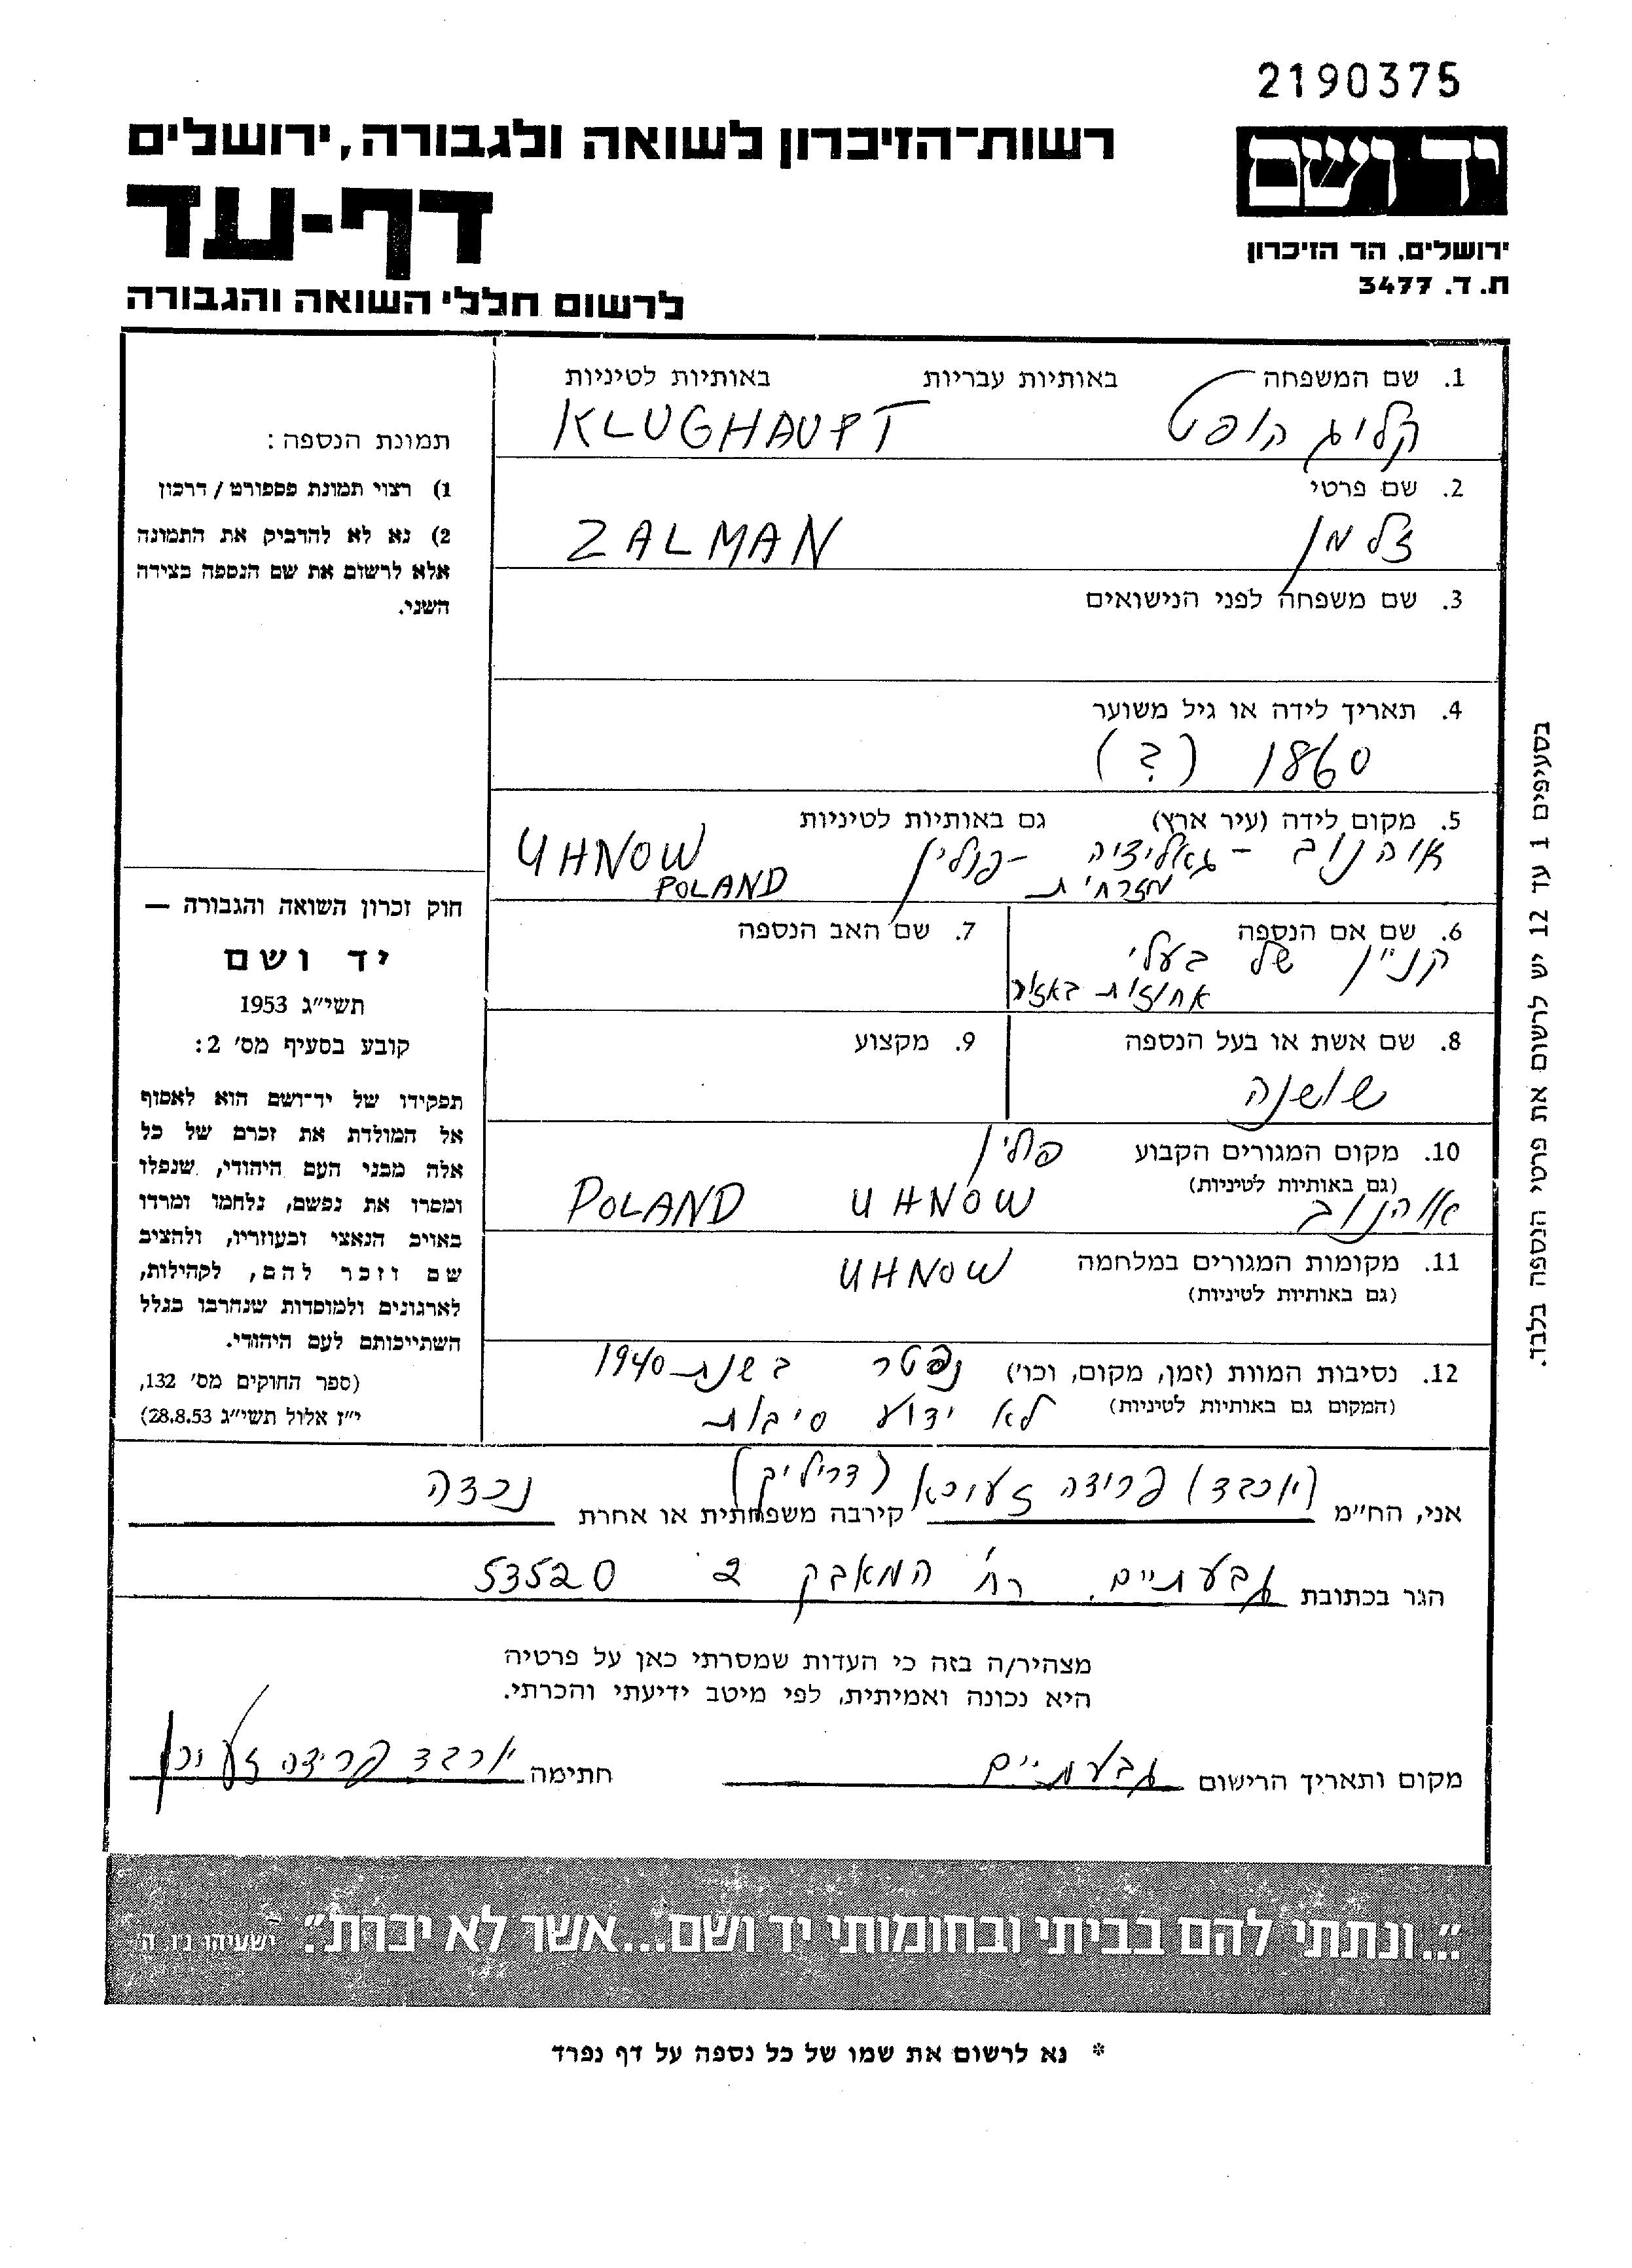 2190375
רשות-הזיכרון לשואה ולגבורה, ירושלים
דף-עד
לרשום חללי השואה והגבורה
יד ושם
ירושלים, הר הזיכרון
ת. ד. 3477
1. שם המשפחה באותיות עבריות באותיות לטיניות
קליג הופט KLUGHAUPT
2. שם פרטי
זלמן ZALMAN
3. שם משפחה לפני הנישואים
4. תאריך לידה או גיל משוער
1860 (?)
5. מקום לידה (עיר ארץ) גם באותיות לטיניות
אוהנוב - גאליציה - פולין UHNOW
מזרחית POLAND
6. שם אם הנספה 7. שם האב הנספה
קניין של בעלי
אחוזות באזור
8. שם אשת או בעל הנספה 9. מקצוע
שושנה
10. מקום המגורים הקבוע פולין
(גם באותיות לטיניות)
אוהנוב UHNOW POLAND
11. מקומות המגורים במלחמה UHNOW
(גם באותיות לטיניות)
12. נסיבות המוות (זמן, מקום, וכו') נפטר בשנת 1940
(המקום גם באותיות לטיניות) לא ידוע סיבות
תמונת הנספה:
1) רצוי תמונת פספורט / דרכון
2) נא לא להדביק את התמונה
אלא לרשום את שם הנספה בצידה
השני.
חוק זכרון השואה והגבורה —
יד ושם
תשי"ג 1953
קובע בסעיף מס' 2:
תפקידו של יד-ושם הוא לאסוף
אל המולדת את זכרם של כל
אלה מבני העם היהודי, שנפלו
ומסרו את נפשם, נלחמו ומרדו
באויב הנאצי ובעוזריו, ולהציב
שם וזכר להם, לקהילות,
לארגונים ולמוסדות שנחרבו בגלל
השתייכותם לעם היהודי.
(ספר החוקים מס' 132,
י"ז אלול תשי"ג 28.8.53)
בסעיפים 1 עד 12 יש לרשום את פרטי הנספה בלבד.
אני, הח"מ פרידה קירבה משפחתית או אחרת נכדה
הגר בכתובת גבעתיים. רח' המאבק 2 53520
מצהיר/ה בזה כי העדות שמסרתי כאן על פרטיה
היא נכונה ואמיתית, לפי מיטב ידיעתי והכרתי.
מקום ותאריך הרישום גבעתיים חתימה פרידה
"...ונתתי להם בביתי ובחומותי יד ושם...אשר לא יכרת". ישעיהו נ"ו, ה'
* נא לרשום את שמו של כל נספה על דף נפרד